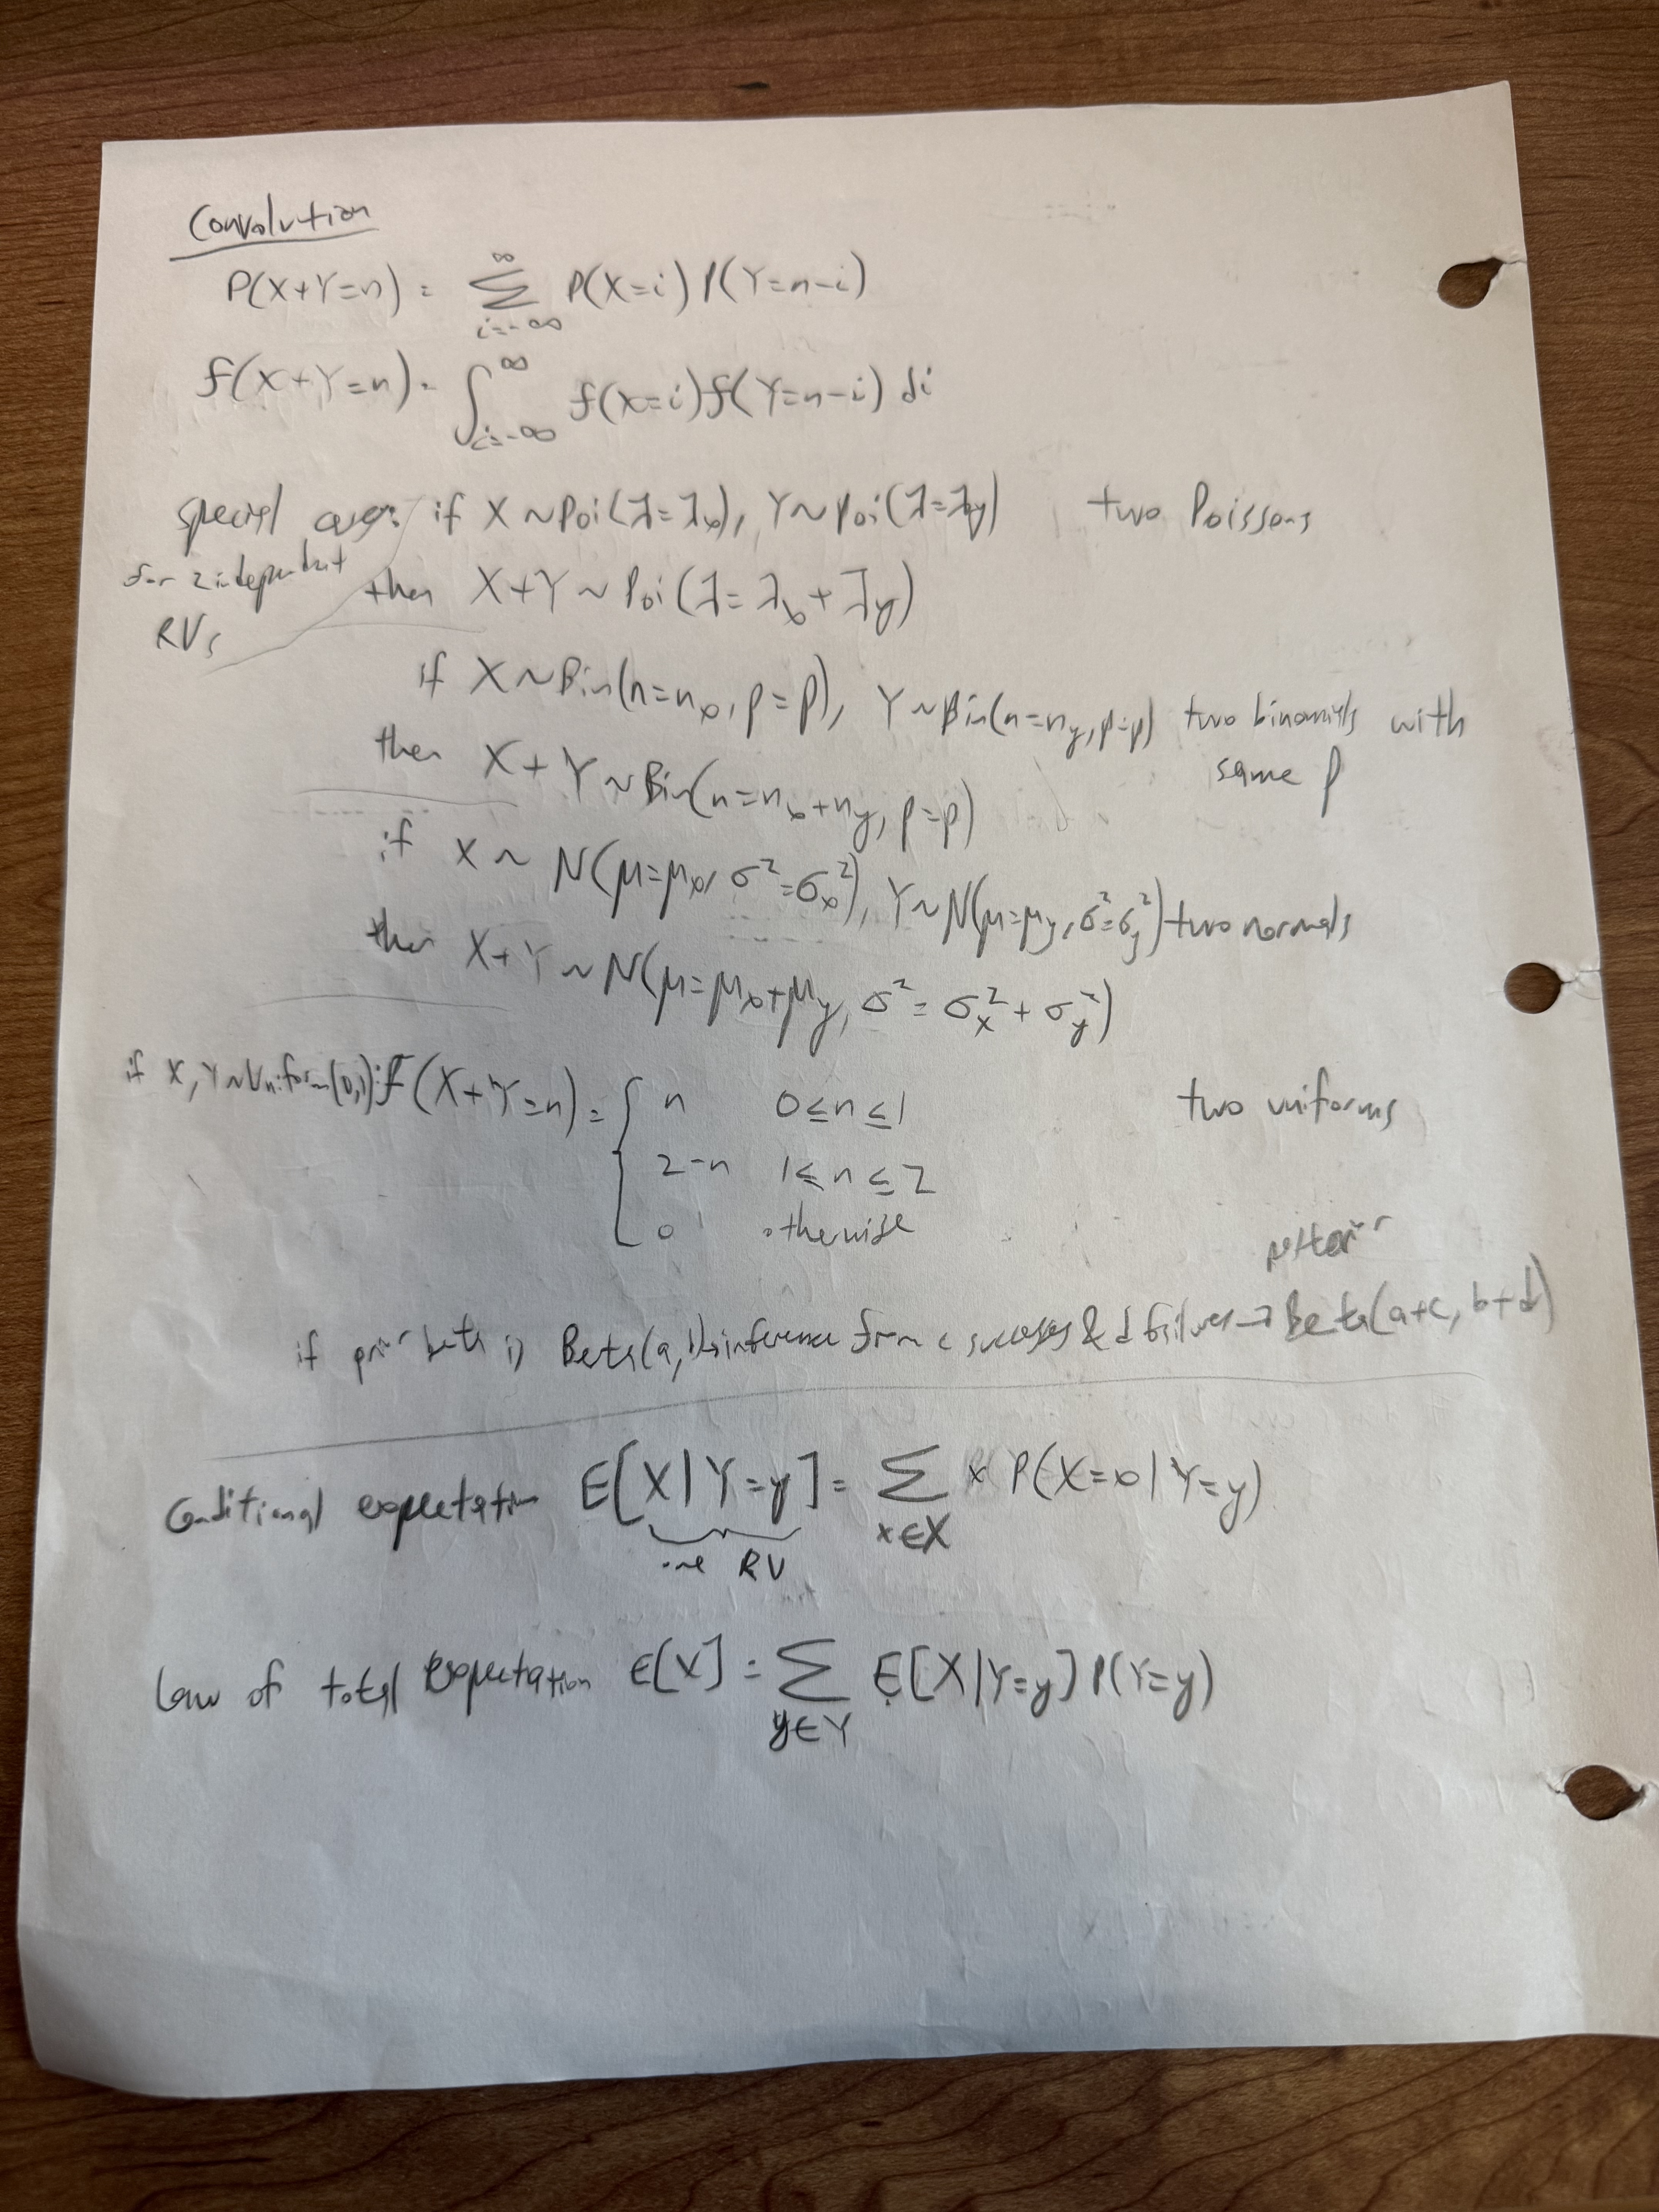 Convolution
P(X+Y=n) = ∑_{i=-∞}^{∞} P(X=i) P(Y=n-i)
f(X+Y=n) = ∫_{i=-∞}^{∞} f(X=i) f(Y=n-i) di
special cases: if X ~ Poi(λ=λ_x), Y ~ Poi(λ=λ_y) two Poissons
for 2 independent RVs
then X+Y ~ Poi(λ=λ_x+λ_y)
if X ~ Bin(n=n_x, p=p), Y ~ Bin(n=n_y, p=p) two binomials with same p
then X+Y ~ Bin(n=n_x+n_y, p=p)
if X ~ N(μ=μ_x, σ²=σ_x²), Y ~ N(μ=μ_y, σ²=σ_y²) two normals
then X+Y ~ N(μ=μ_x+μ_y, σ²=σ_x²+σ_y²)
if X, Y ~ Uniform(0,1): f(X+Y=n) = { n 0≤n≤1 two uniforms
2-n 1≤n≤2
0 otherwise
posterior
if prior beta is Beta(a, b) → inference from c successes & d failures → Beta(a+c, b+d)
Conditional expectation E[X|Y=y] = ∑_{x∈X} x P(X=x|Y=y)
one RV
Law of total expectation E[X] = ∑_{y∈Y} E[X|Y=y] P(Y=y)